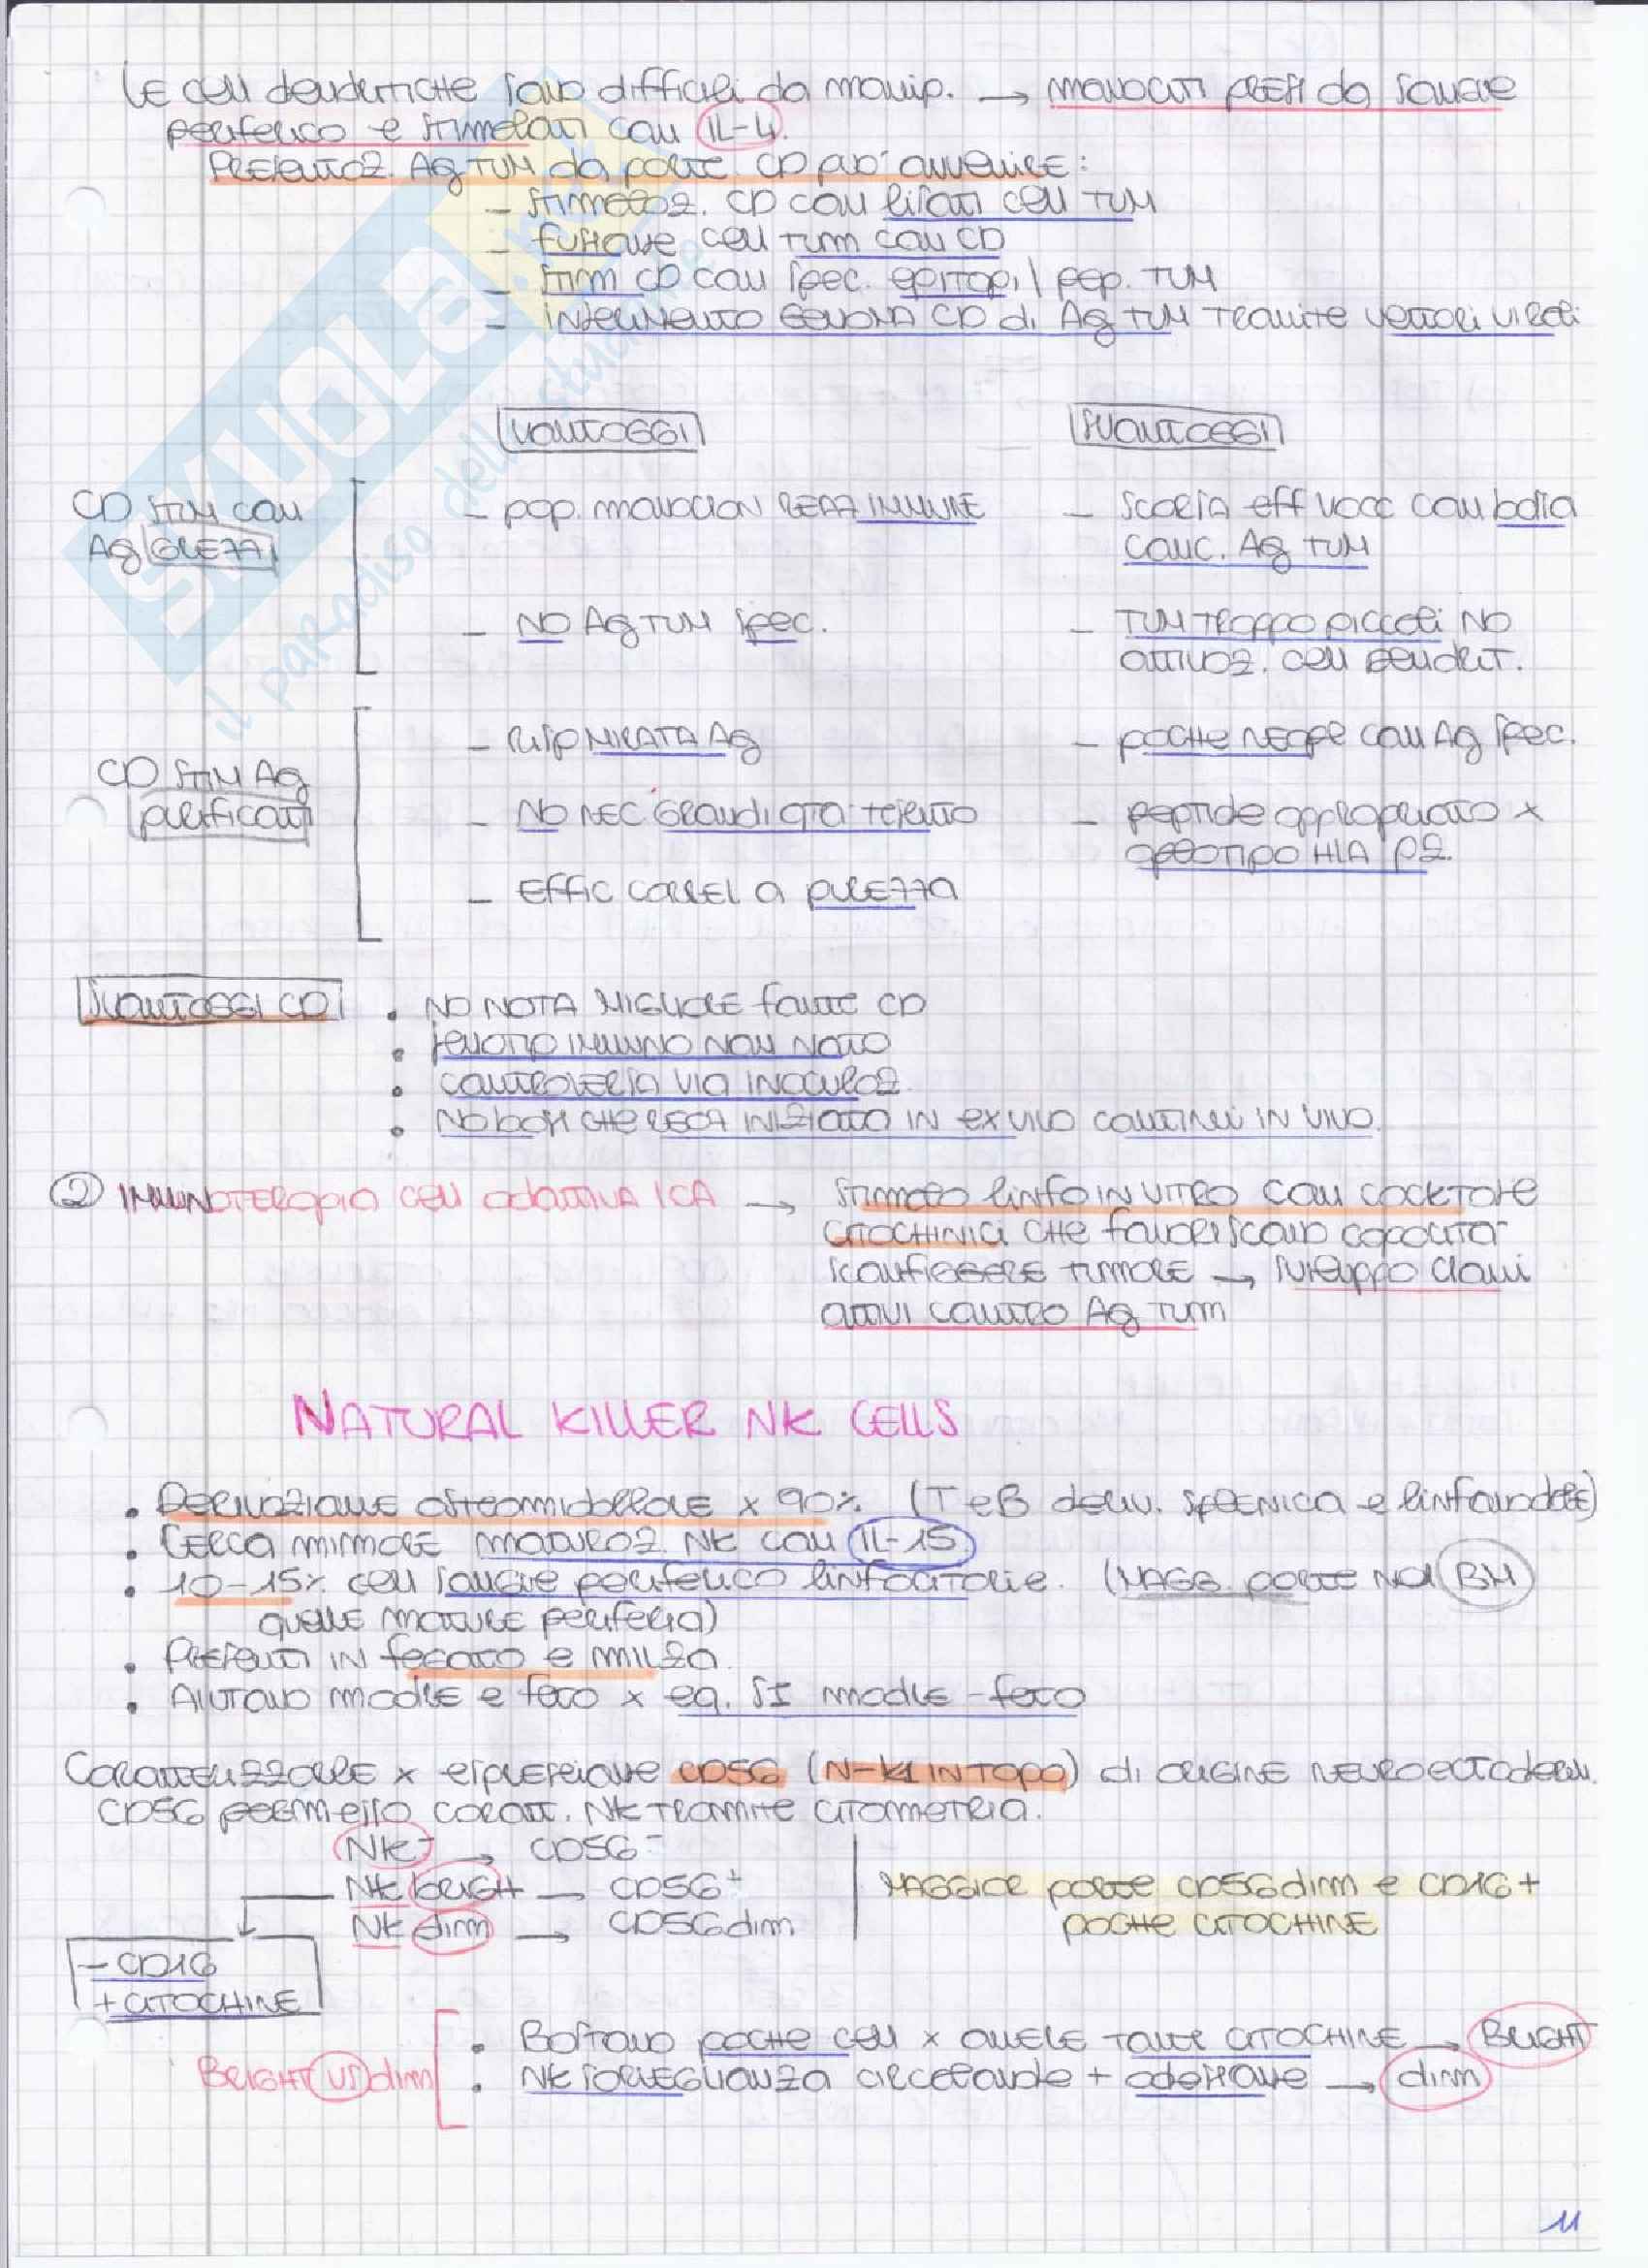 LE CELL DENDRITICHE SONO difficili da manip. → MONOCITI PRESI da SANGUE
PERIFERICO e STIMOLATI CON IL-4.
PRESENTAZ. Ag TUM da parte CD PUO' AVVENIRE:
- STIMOLAZ. CD CON LISATI CELL TUM
- fusione CELL TUM CON CD
- STIM CD CON SPEC. EPITOPI / PEP. TUM
- INSERIMENTO GENOMA CD di Ag TUM TRAMITE VETTORI VIRALI
VANTAGGI
SVANTAGGI
CD STIM CON
Ag GREZZI
- POP. MONOCLON REAZ IMMUNE
- SCARSA eff VACC CON bassa
CONC. Ag TUM
- NO Ag TUM SPEC.
- TUM TROPPO PICCOLI NO
ATTIVAZ. CELL DENDRIT.
CD STIM Ag
PURIFICATI
- RISP MIRATA Ag
- POCHE NEOPL CON Ag SPEC.
- NO NEC. GRANDI QTA' TESSUTO
- PEPTIDE APPROPRIATO x
APLOTIPO HLA PZ.
- EFFIC CORREL a PUREZZA
SVANTAGGI CD
• NO NOTA MIGLIORE FONTE CD
• FENOTIP IMMUNO NON NOTO
• CONTROVERSA VIA INOCULAZ.
• NO BASI CHE REAZ INIZIATO IN EX VIVO CONTINUI IN VIVO.
② IMMUNOTERAPIA CELL ADOTTIVA ICA → STIMOLO LINFO IN VITRO CON COCKTAIL
CITOCHINICI CHE FAVORISCANO CAPACITA'
SCONFIGGERE TUMORE → SVILUPPO CLONI
ATTIVI CONTRO Ag TUM
NATURAL KILLER NK CELLS
• DERIVAZIONE OSTEOMIDOLLARE x 90% (T e B deriv. SPLENICA e LINFONODALE)
• CERCA MIMARE MATURAZ. NK CON IL-15
• 10-15% CELL SANGUE PERIFERICO LINFOCITARIE. (MAGG. PARTE NEL BM
QUELLE MATURE PERIFERIA)
• PRESENTI IN FEGATO e MILZA.
• AIUTANO MADRE e FETO x eq. SI MADRE-FETO
CARATTERIZZARE x ESPRESSIONE CD56 (N-K1 IN TOPO) di ORIGINE NEUROECTODERM.
CD56 PERMESSO CARATT. NK TRAMITE CITOMETRIA.
NK⁻ → CD56⁻
NK BRIGH → CD56⁺
NK dim → CD56 dim
MAGGIOR PARTE CD56dim e CD16+
POCHE CITOCHINE
- CD16
+ CITOCHINE
BRIGHT VS dim
• BASTANO POCHE CELL x AVERE TANTE CITOCHINE → BRIGHT
• NK SORVEGLIANZA CIRCOLANDO + ADESIONE → dim
11
SKUOLA.net
il paradiso dello studente